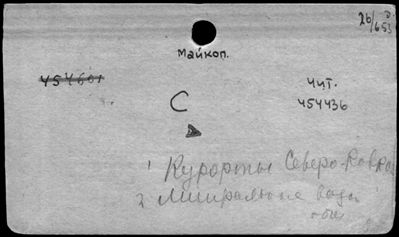 26/653
Д.
Майкоп.
454601
Чит.
454436
С
1 Курорты Северо-Кавказ
2 Минеральные воды